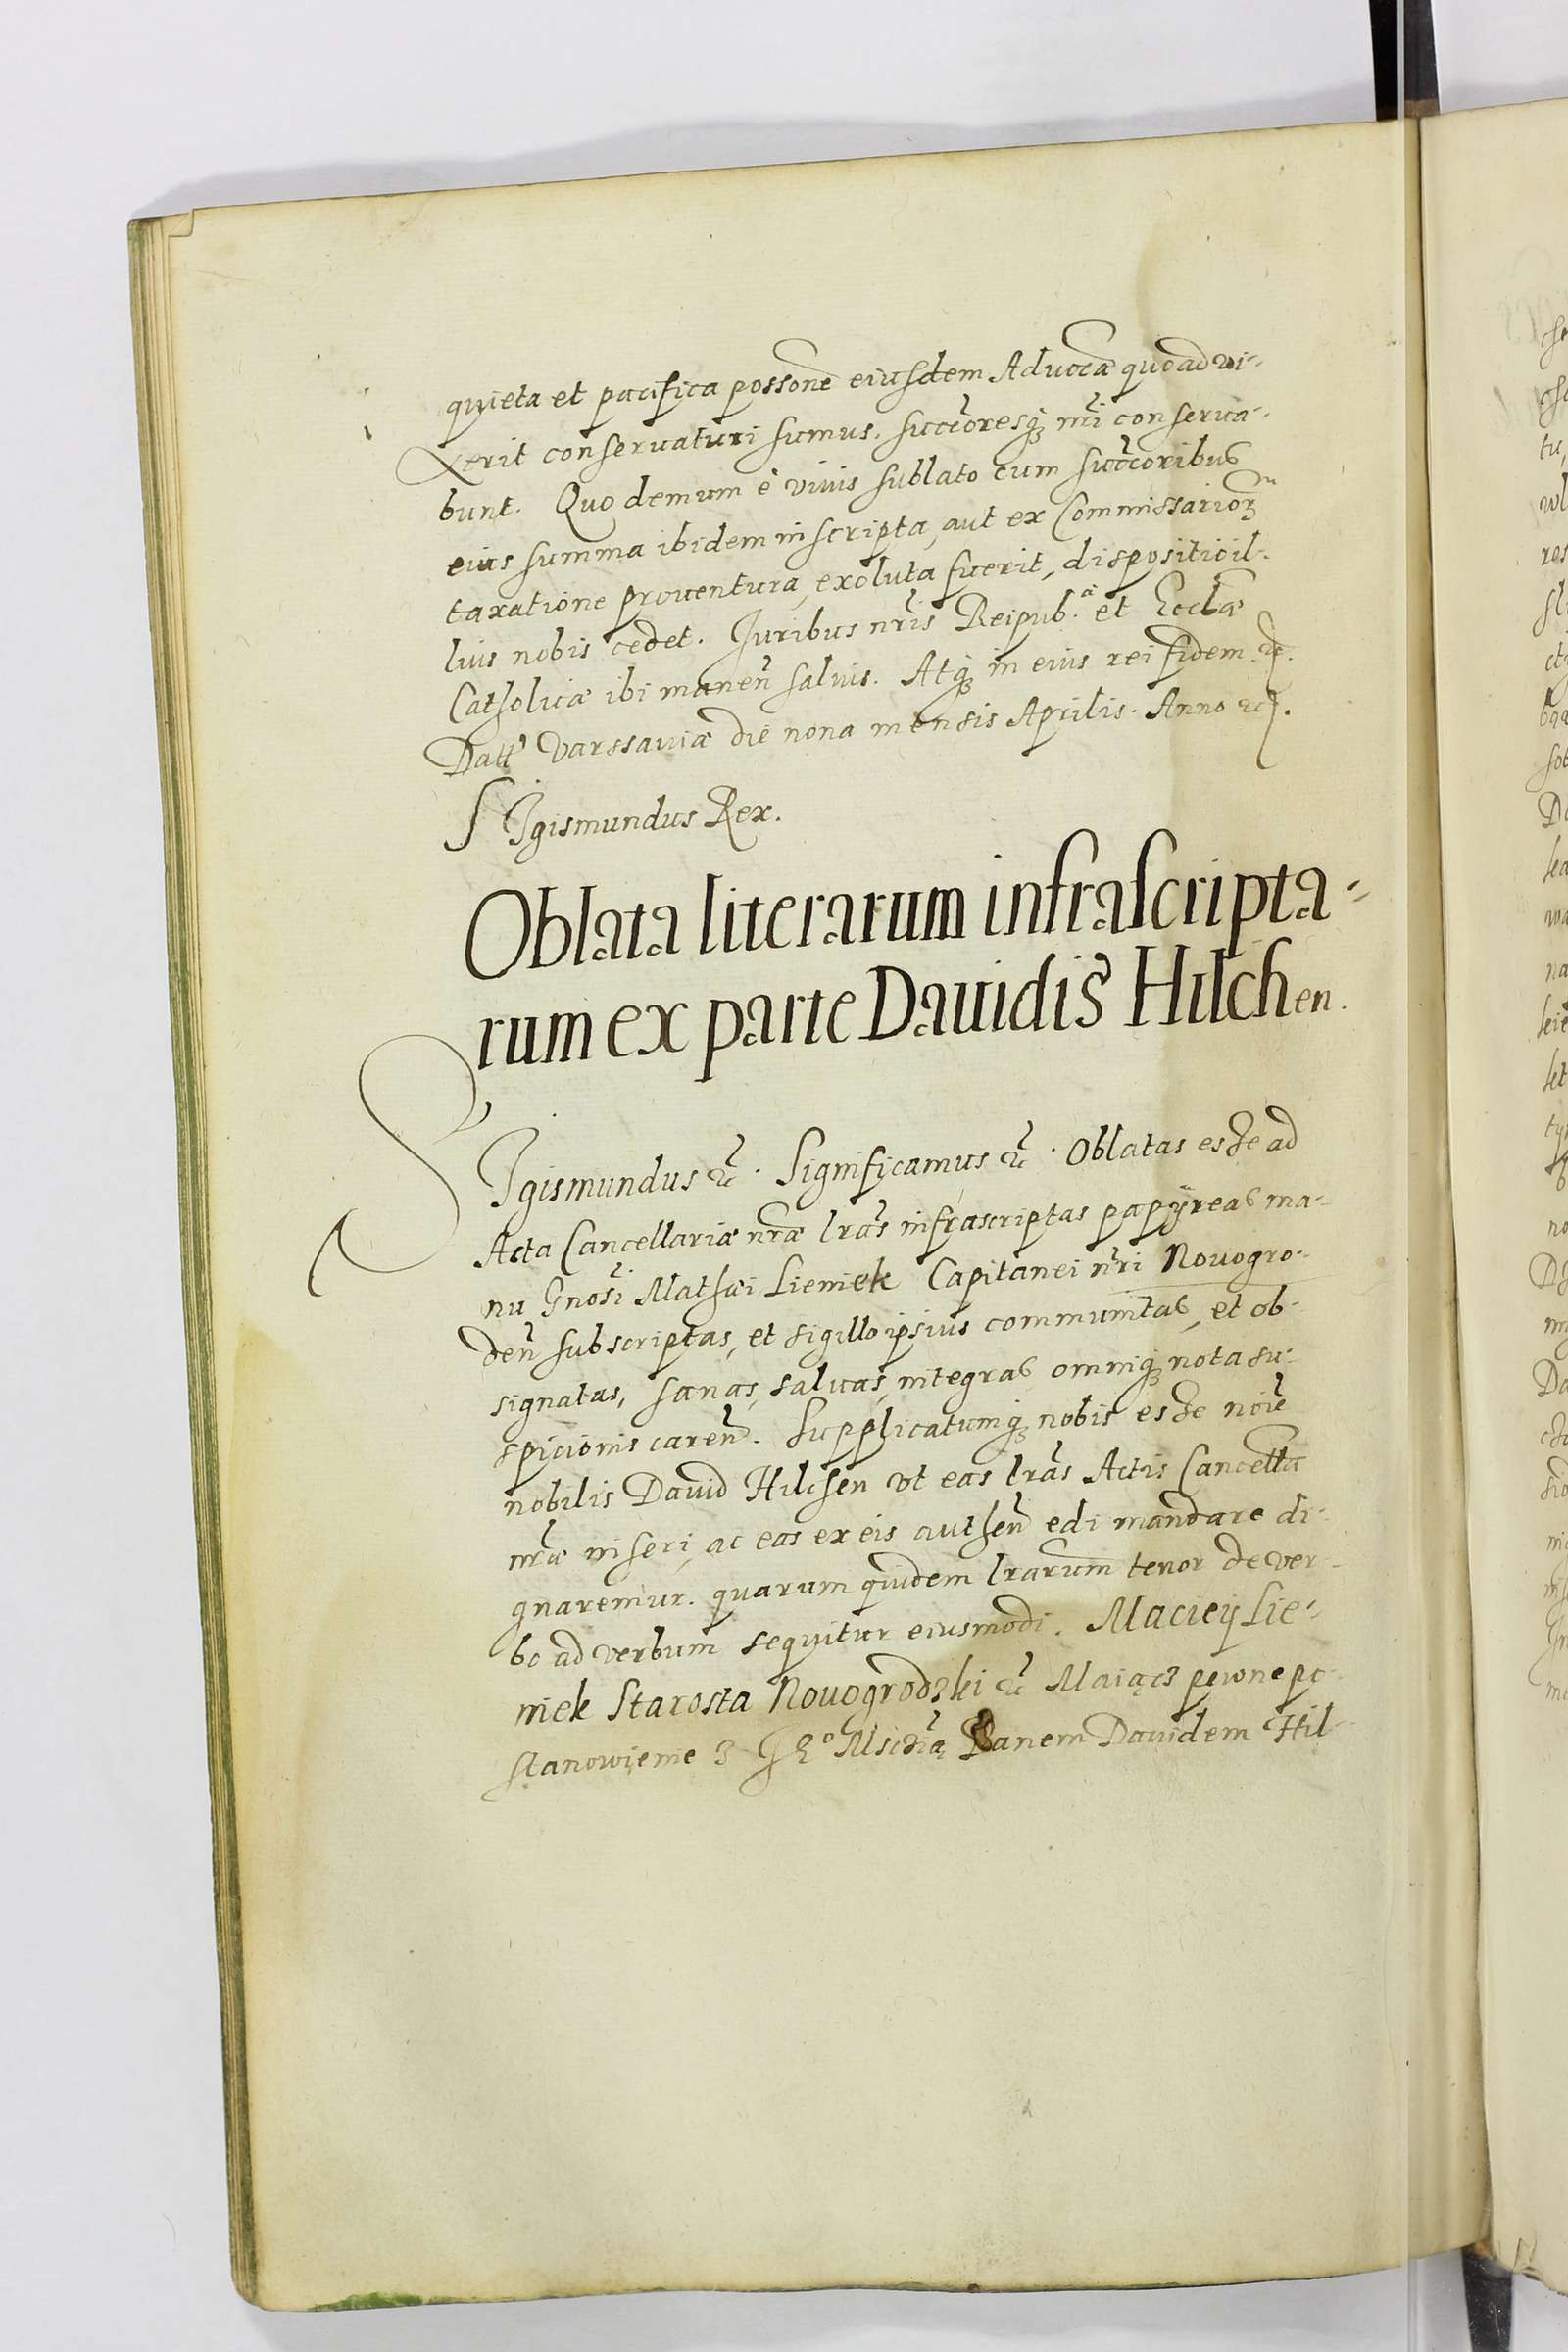 quieta et pacifica possone eiusdem Aduoca quoad vi-
xerit conseruaturi sumus. succoresq nri conserua-
bunt. Quo demum è viuis sublato cum succoribus
eius summa ibidem inscripta, aut ex Commissarior
taxatione prouentura, exoluta fuerit, dispositio il-
lius nobis cedet. Juribus nris Reipub.a et Eccla
Catholicæ ibi manen saluis. Atq in eius rei fidem. &c.
Datt Varssauiæ die nona mensis Aprilis. Anno &c.
SIgismundus Rex.
Oblata literarum infrascripta-
rum ex parte Dauidis Hilchen.
SIgismundus &c. Significamus &c. Oblatas esse ad
Acta Cancellariæ nræ lras infrascriptas papÿreas ma-
nu Gnosi Mathæi Lieniek Capitanei nri Nouogro-
den subscriptas, et sigillo ipsius communitas, et ob-
signatas, sanas, saluas, integras omniq nota su-
spicionis caren. Supplicatumq nobis esse noie
nobilis Dauid Hilchen vt eas lras Actis Cancella
nræ inseri, ac eas ex eis authen edi mandare di-
gnaremur. quarum quidem lrarum tenor de ver-
bo ad verbum sequitur eiusmodi. Maciey Lie-
niek Starosta Nouogrodzki &c Maiącz pewne po-
stanowienie z Panem Dauidem Hil-